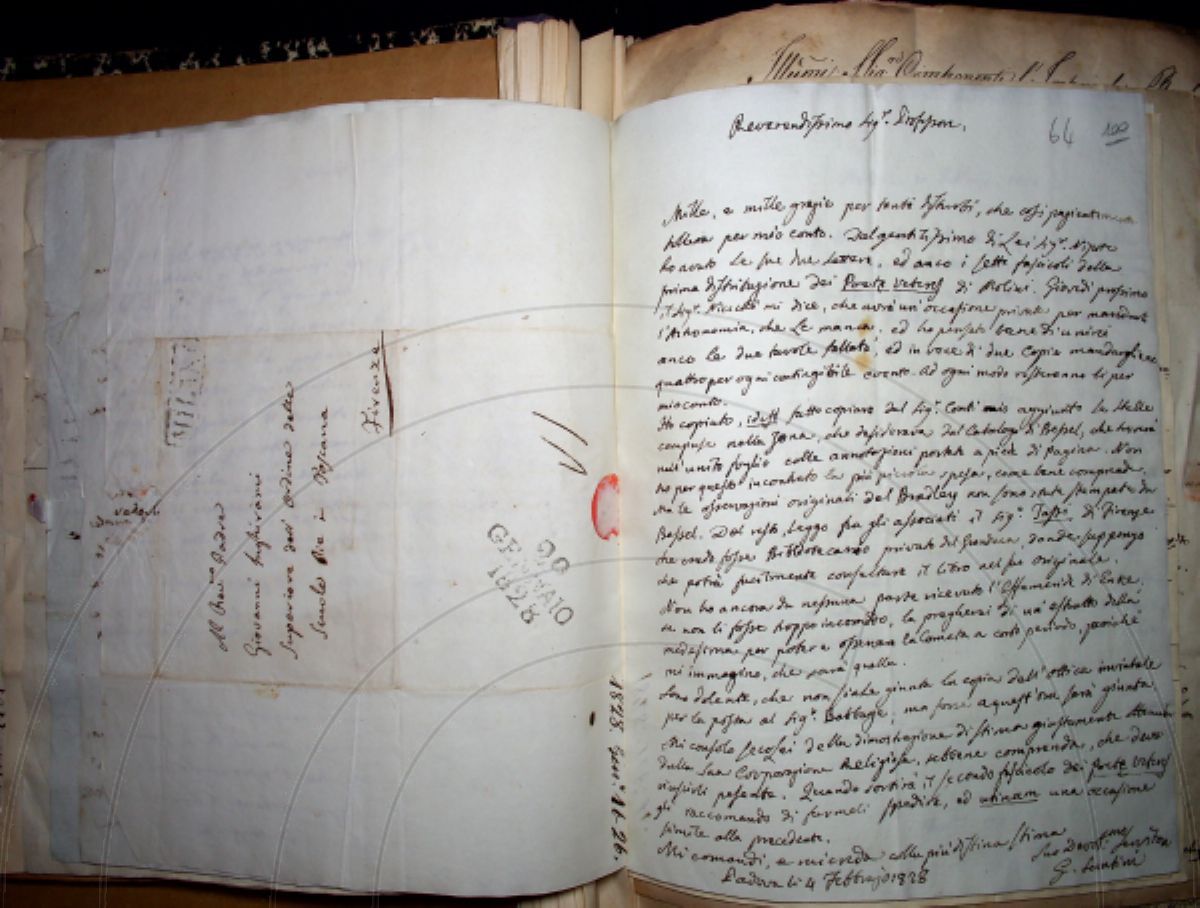 Al Rev.mo Padre
Giovanni Inghirami
Superiore dell'Ordine delle
Scuole Pie in Toscana
Firenze
29
GENNAIO
1828
1828. Genn.° 26.
Reverendissimo Sig.r Professore.
64 100
Mille, e mille grazie per tanti disturbi, che così
per mio conto. Dal gentilissimo di Lei Sig.r Nipote
ho avuto le sue due lettere, ed anco i sette fascicoli della
prima distribuzione dei Poetæ Veteres di Molini. Giovedì prossimo
il Sig.r mi dice, che avrà un'occasione privata per mandare
l'Astronomia, che Le manca, ed ho pensato bene di unirci
anco le due tavole fallate, ed in vece di due Copie mandargliene
quattro per ogni contingibile evento. Ad ogni modo resteranno lì per
mio conto.
Ho copiato, idest fatto copiare dal Sig.r Conti mio aggiunto le Stelle
comprese nella Zona, che desiderava dal Catalogo di Bessel, che troverà
nell'unito foglio colle annotazioni portate a piè di pagina. Non
ho per questo incontrato la più piccola spesa, come bene comprende.
Ma le osservazioni originali del Bradley non sono state stampate da
Bessel. Del resto, leggo fra gli associati il Sig.r Tassi di Firenze
che credo fosse Bibliotecario privato del Granduca, donde suppongo
che potrà facilmente consultare il libro nel suo originale.
Non ho ancora da nessuna parte ricevuto l'Effemeride di Enke.
se non li fosse troppo incomodo, la pregherei di un estratto della
medesima per poter osservare la Cometa a corto periodo, poiché
mi immagino, che sarà quella.
Sono dolente, che non siale giunta la copia dell'Ottica inviatale
per la posta al Sig.r Babbage; ma forse a quest'ora sarà giunta.
Mi consolo secolei della dimostrazione di stima giustamente
dalla Sua Corporazione Religiosa, sebbene comprenda, che deve
riuscirli pesante. Quando sortirà il secondo fascicolo dei Poetæ Veteres
gli raccomando di farmeli spedire, ed utinam una occasione
simile alla precedente.
Mi comandi, e mi creda colla più distinta stima
Padova li 4 Febbrajo 1828
Suo Devot.mo Servitore
G. Santini